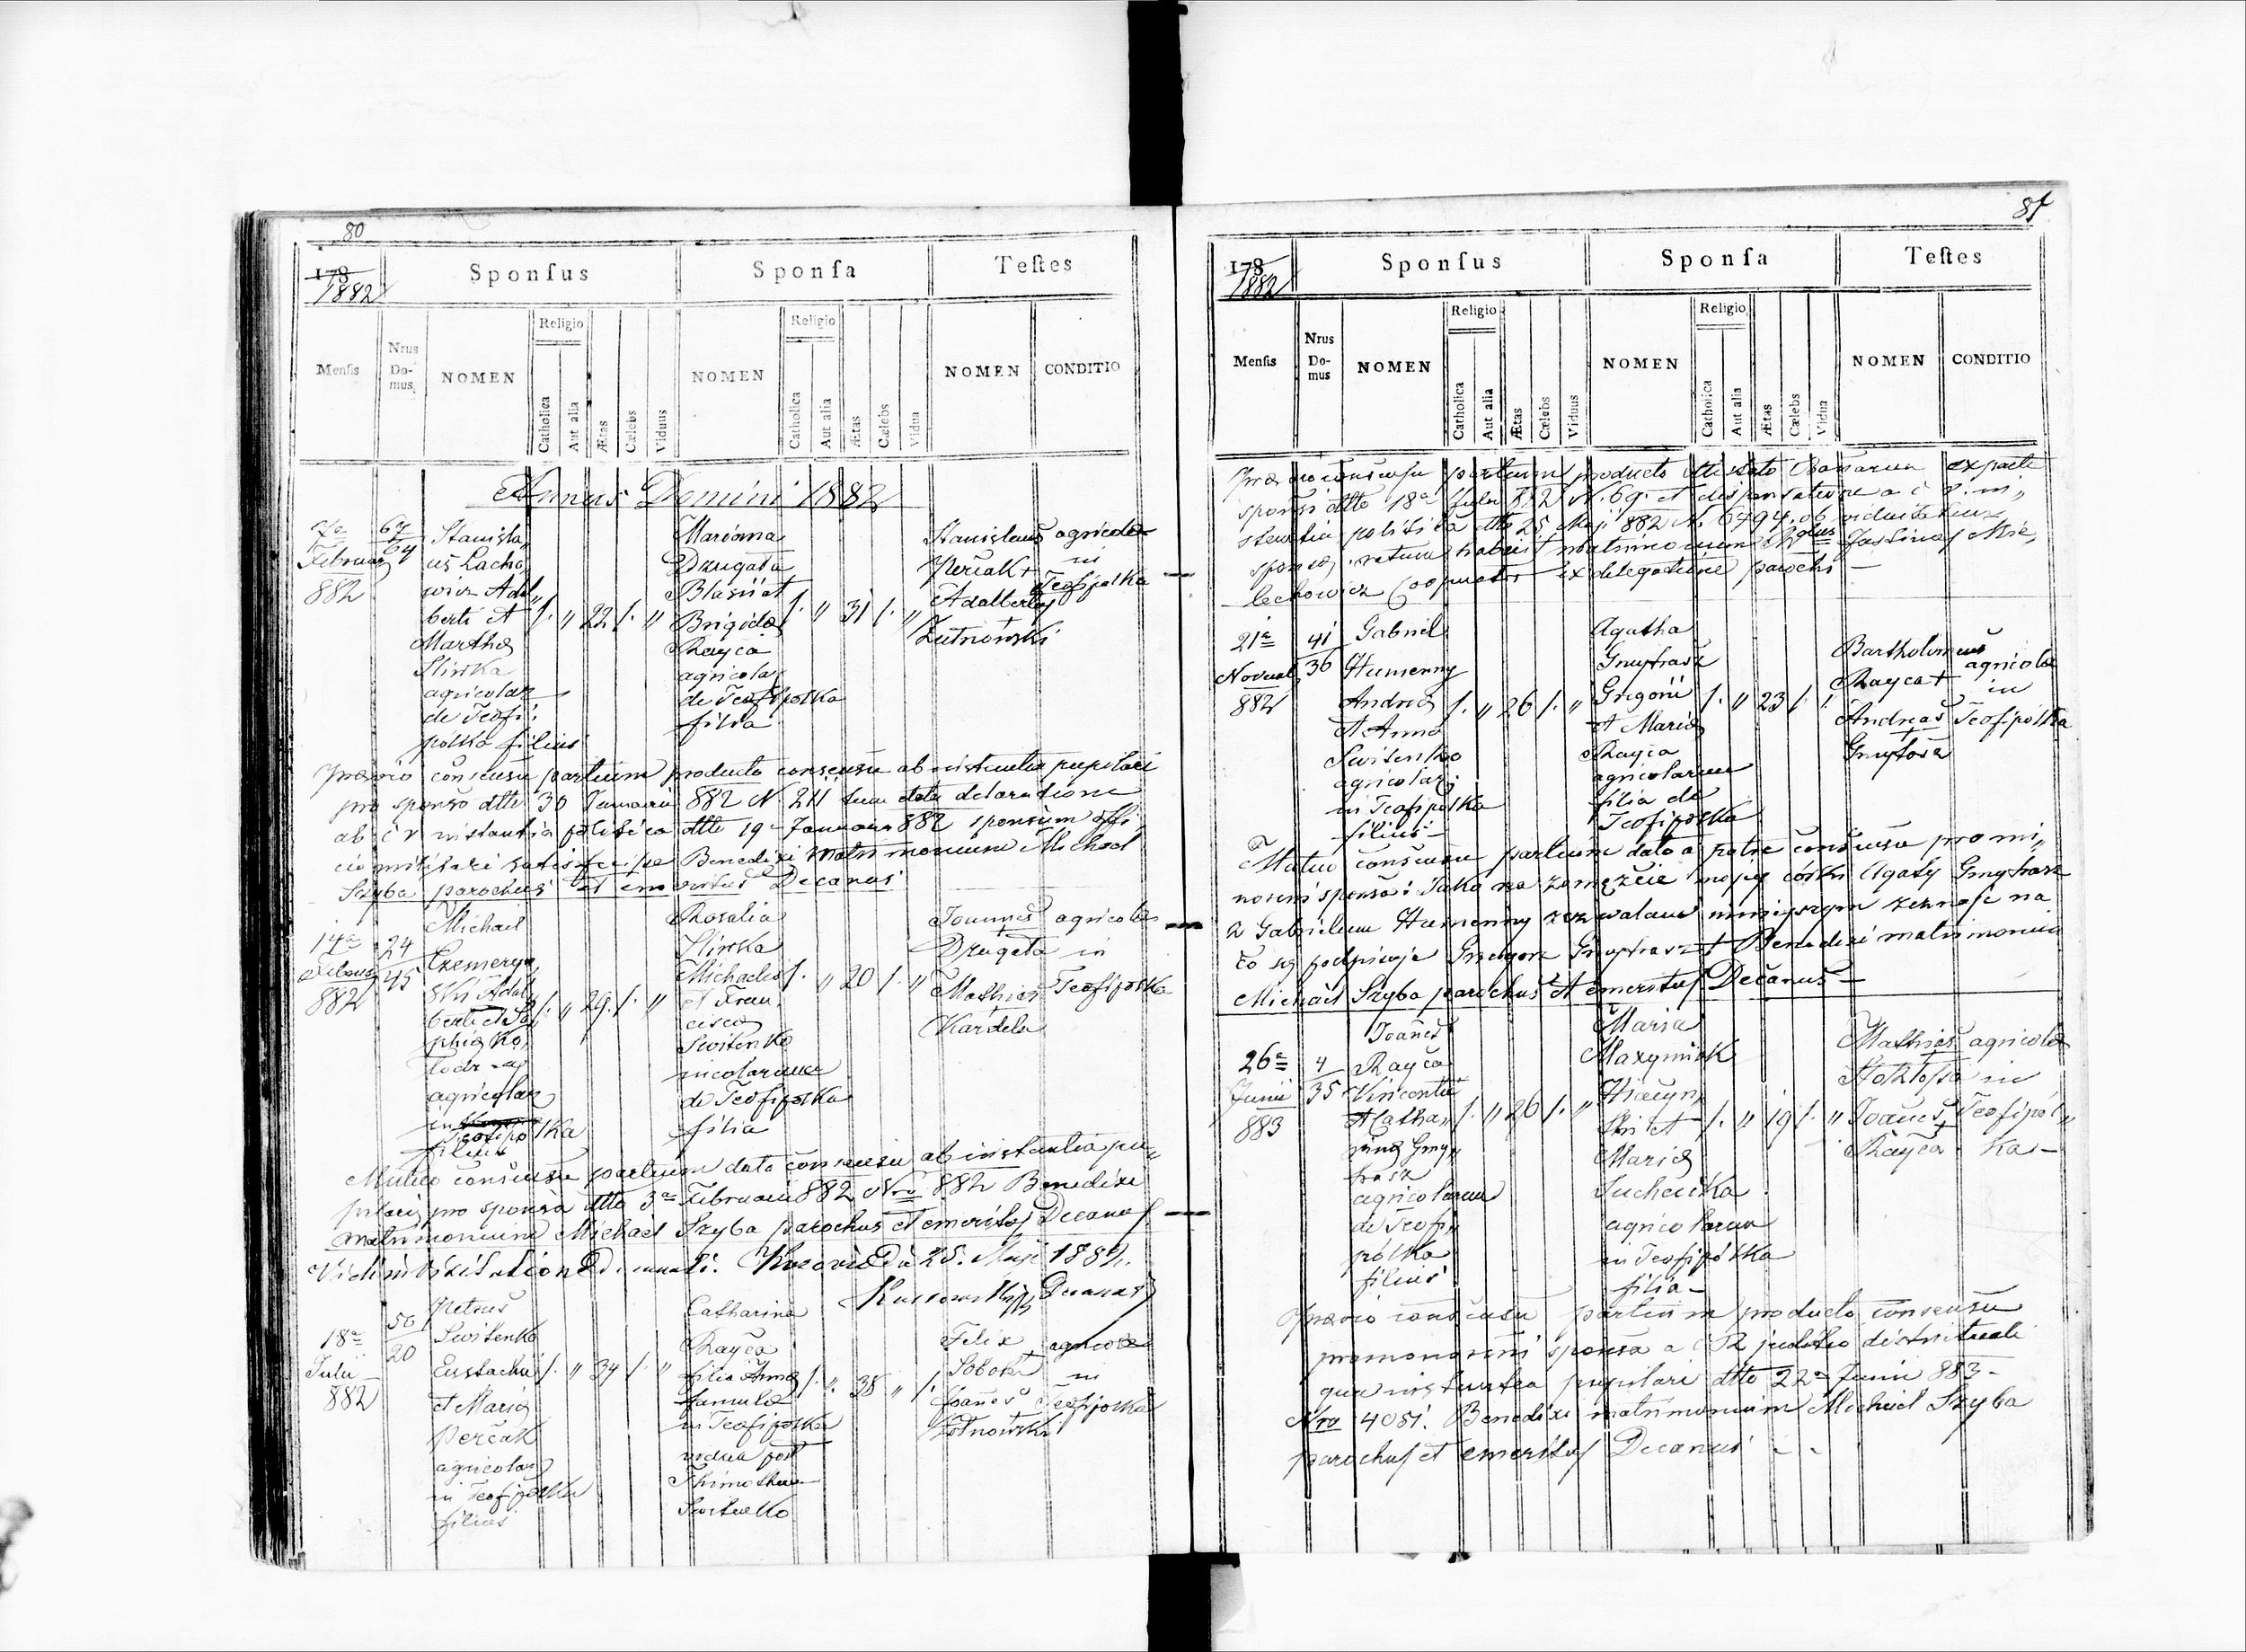 80
178
1882
Sponſus
Sponſa
Teſtes
Menſis
Nrus
Do-
mus
NOMEN
Religio
Catholica
Aut alia
Ætas
Cælebs
Viduus
NOMEN
Religio
Catholica
Aut alia
Ætas
Cælebs
Vidua
NOMEN
CONDITIO
Annus Domini 1882
7a
Februar
882
67
64
Stanisla„
us Lacho„
wicz Adal„
berti et
Martha
Sliwka
agricolar
de Teofi:
polka filius
/. „ 22 /. „
Marianna
Drugata
Blasii et
Brigida
Rayca
agricolar
de Teofipolka
filia
/. „ 31 /. „
Stanislaus
Perčak +
Adalbertus
+
Žutnowski
agricolae
in
Teofipolka
Praevio consensu partium producto consensu ab instantia pupilari
pro sponso dtto 30 Januarii 882 N. 211 tum data declaratione
ab c r instantia politica dtto 19a Januarii 882 sponsum offi
cio militari satisfecisse Benedixi matrimonium Michael
Szyba parochus et emeritus Decanus
14a
Februar
882
24
45
Michael
Czemeryn„
ski Adal„
berti et So„
phia Ko„
agricolar
in
Teofipolka
filius
/. „ 29 /. „
Rosalia
Sliwka
Michaelis
et Fran„
cisca
Switenko
incolarum
de Teofipolka
filia
/. „ 20 /. „
Joannes
+
Drugata
Mathias
+
Kardela
agricolae
in
Teofipolka
Mutuo consensu partium dato consensu ab instantia pu„
pilari pro sponsa dtto 3a Februarii 882 Nro 882 Benedixi
matrimonium Michael Szyba parochus et emeritus Decanus
Vidi in Visitatione Decanali. 25. Maji 1882.
Decanus
18a
Julii
882
50
20
Petrus
Switenko
Eustachii
et Maria
Perčak
agricolar
in Teofipolka
filius
/. „ 34 /. „
Catharina
Rayca
filia Anna
famula
in Teofipolka
vidua post
Switenko
/. „ 38 „ /.
Felix
+
Sobota
Joanes
+
Žutnowski
agricolae
in
Teofipolka
81
178
1882
Sponſus
Sponſa
Teſtes
Menſis
Nrus
Do-
mus
NOMEN
Religio
Catholica
Aut alia
Ætas
Cælebs
Viduus
NOMEN
Religio
Catholica
Aut alia
Ætas
Cælebs
Vidua
NOMEN
CONDITIO
Praevio consensu partium producto exparte
sponsi dtto 18a 882 N. 69. et dispensatione a c r. in„
stantia politica dtto 25 Maji 882 N. 6794. ob viduitatem
sponsa ratum habuit matrimonium Justinus Mie„
lechowicz Cooperator ex delegatione parochi —
21a
Novemb
882
41
36
Gabriel
Humenny
Andrea
et Anna
Switenko
agricolar:
in Teofipolka
filius —
/. „ 26 /. „
Agatha
Gnytrasz
Grigorii
et Maria
Rayca
agricolarum
filia de
Teofipolka
/. „ 23 /. „
Bartholomeus
Rayca +
Andreas
+
agricolae
in
Teofipolka
Mutuo consensu partium dato a patre consensu pro mi„
noreni sponsa: Jako na zamęźcie mojej córki Agaty
z Gabrielem Humenny zezwalam niniejszym zeznaję na
co się podpisuję + Benedixi matrimonium
Michael Szyba parochus et emeritus Decanus —
26a
Junii
883
4
35
Joanes
Rayca
Vincentii
et Catha„
rina
agricolarum
de Teofi„
polka
filius
/. „ 26 /. „
Maria
Maxymiak
Hiacyn„
thi et
Maria
agricolarum
in Teofipolka
filia —
/. „ 19 /. „
Mathias
+
Stoktosa
Joanes
+
Rayca
agricolae
in
Teofipol„
ka —
Praevio consensu partium producto consensu
pro sponsa a C R judicio districtuali
qua instantia pupilari dtto 22a Junii 883 —
Nro 4081. Benedixi matrimonium Michael Szyba
parochus et emeritus Decanus